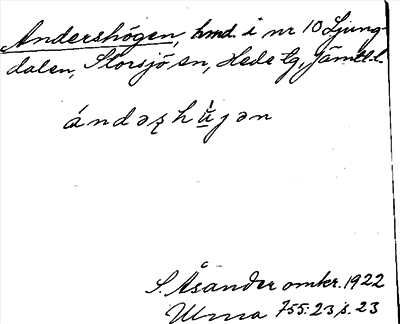 Andershögen, hmd. i nr 10 Ljung-
dalen, Storsjö sn, Hede tg, Jämtl. l.
ándəʂhʉ̀jən
S. Åsander omkr. 1922
Ulma 755:23, s. 23